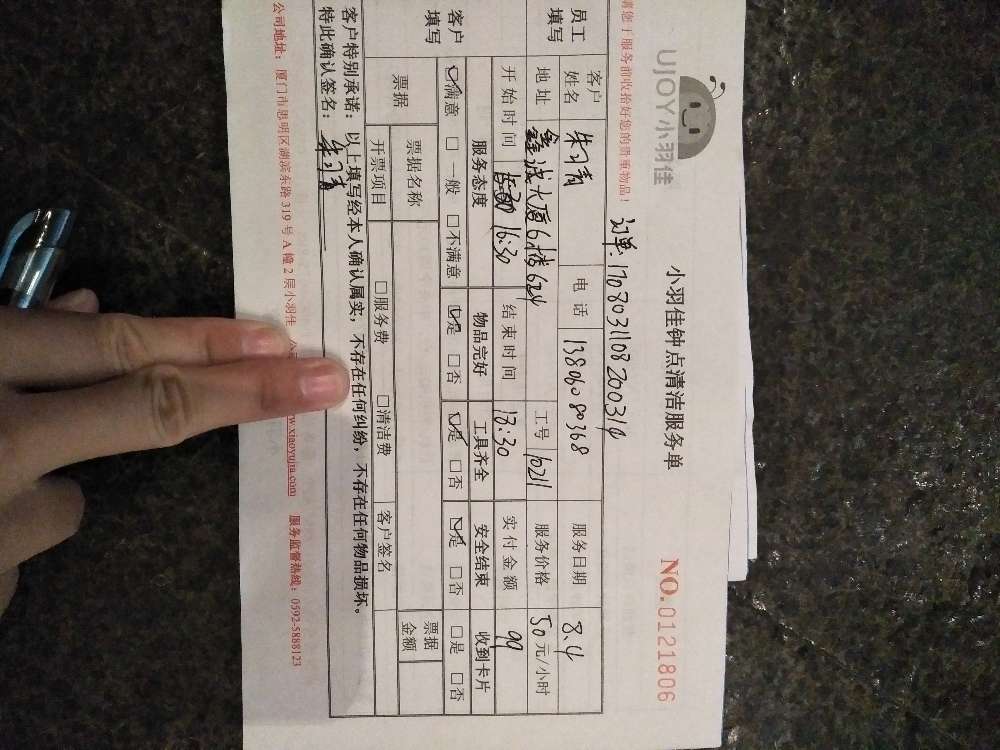 UJOY小羽佳
小羽佳钟点清洁服务单
NO. 0121806
请您于服务前收拾好您的贵重物品!
订单:1708031108200314
员工填写
客户姓名 电话 13806080368 服务日期 8.4
地址 鑫波大厦6楼624 工号 10211 服务价格 50元/小时
开始时间 16:30 结束时间 18:30 实付金额 99
客户填写
服务态度 物品完好 工具齐全 安全结束 收到卡片
☑满意 □一般 □不满意 ☑是 □否 ☑是 □否 ☑是 □否 □是 □否
票据 票据名称 票据金额
开票项目 □服务费 □清洁费 客户签名
客户特别承诺:以上填写经本人确认属实,不存在任何纠纷,不存在任何物品损坏。
特此确认签名:
公司地址:厦门市思明区湖滨东路319号A幢2层小羽佳 www.xiaoyujia.com 服务监督热线:0592-5888123